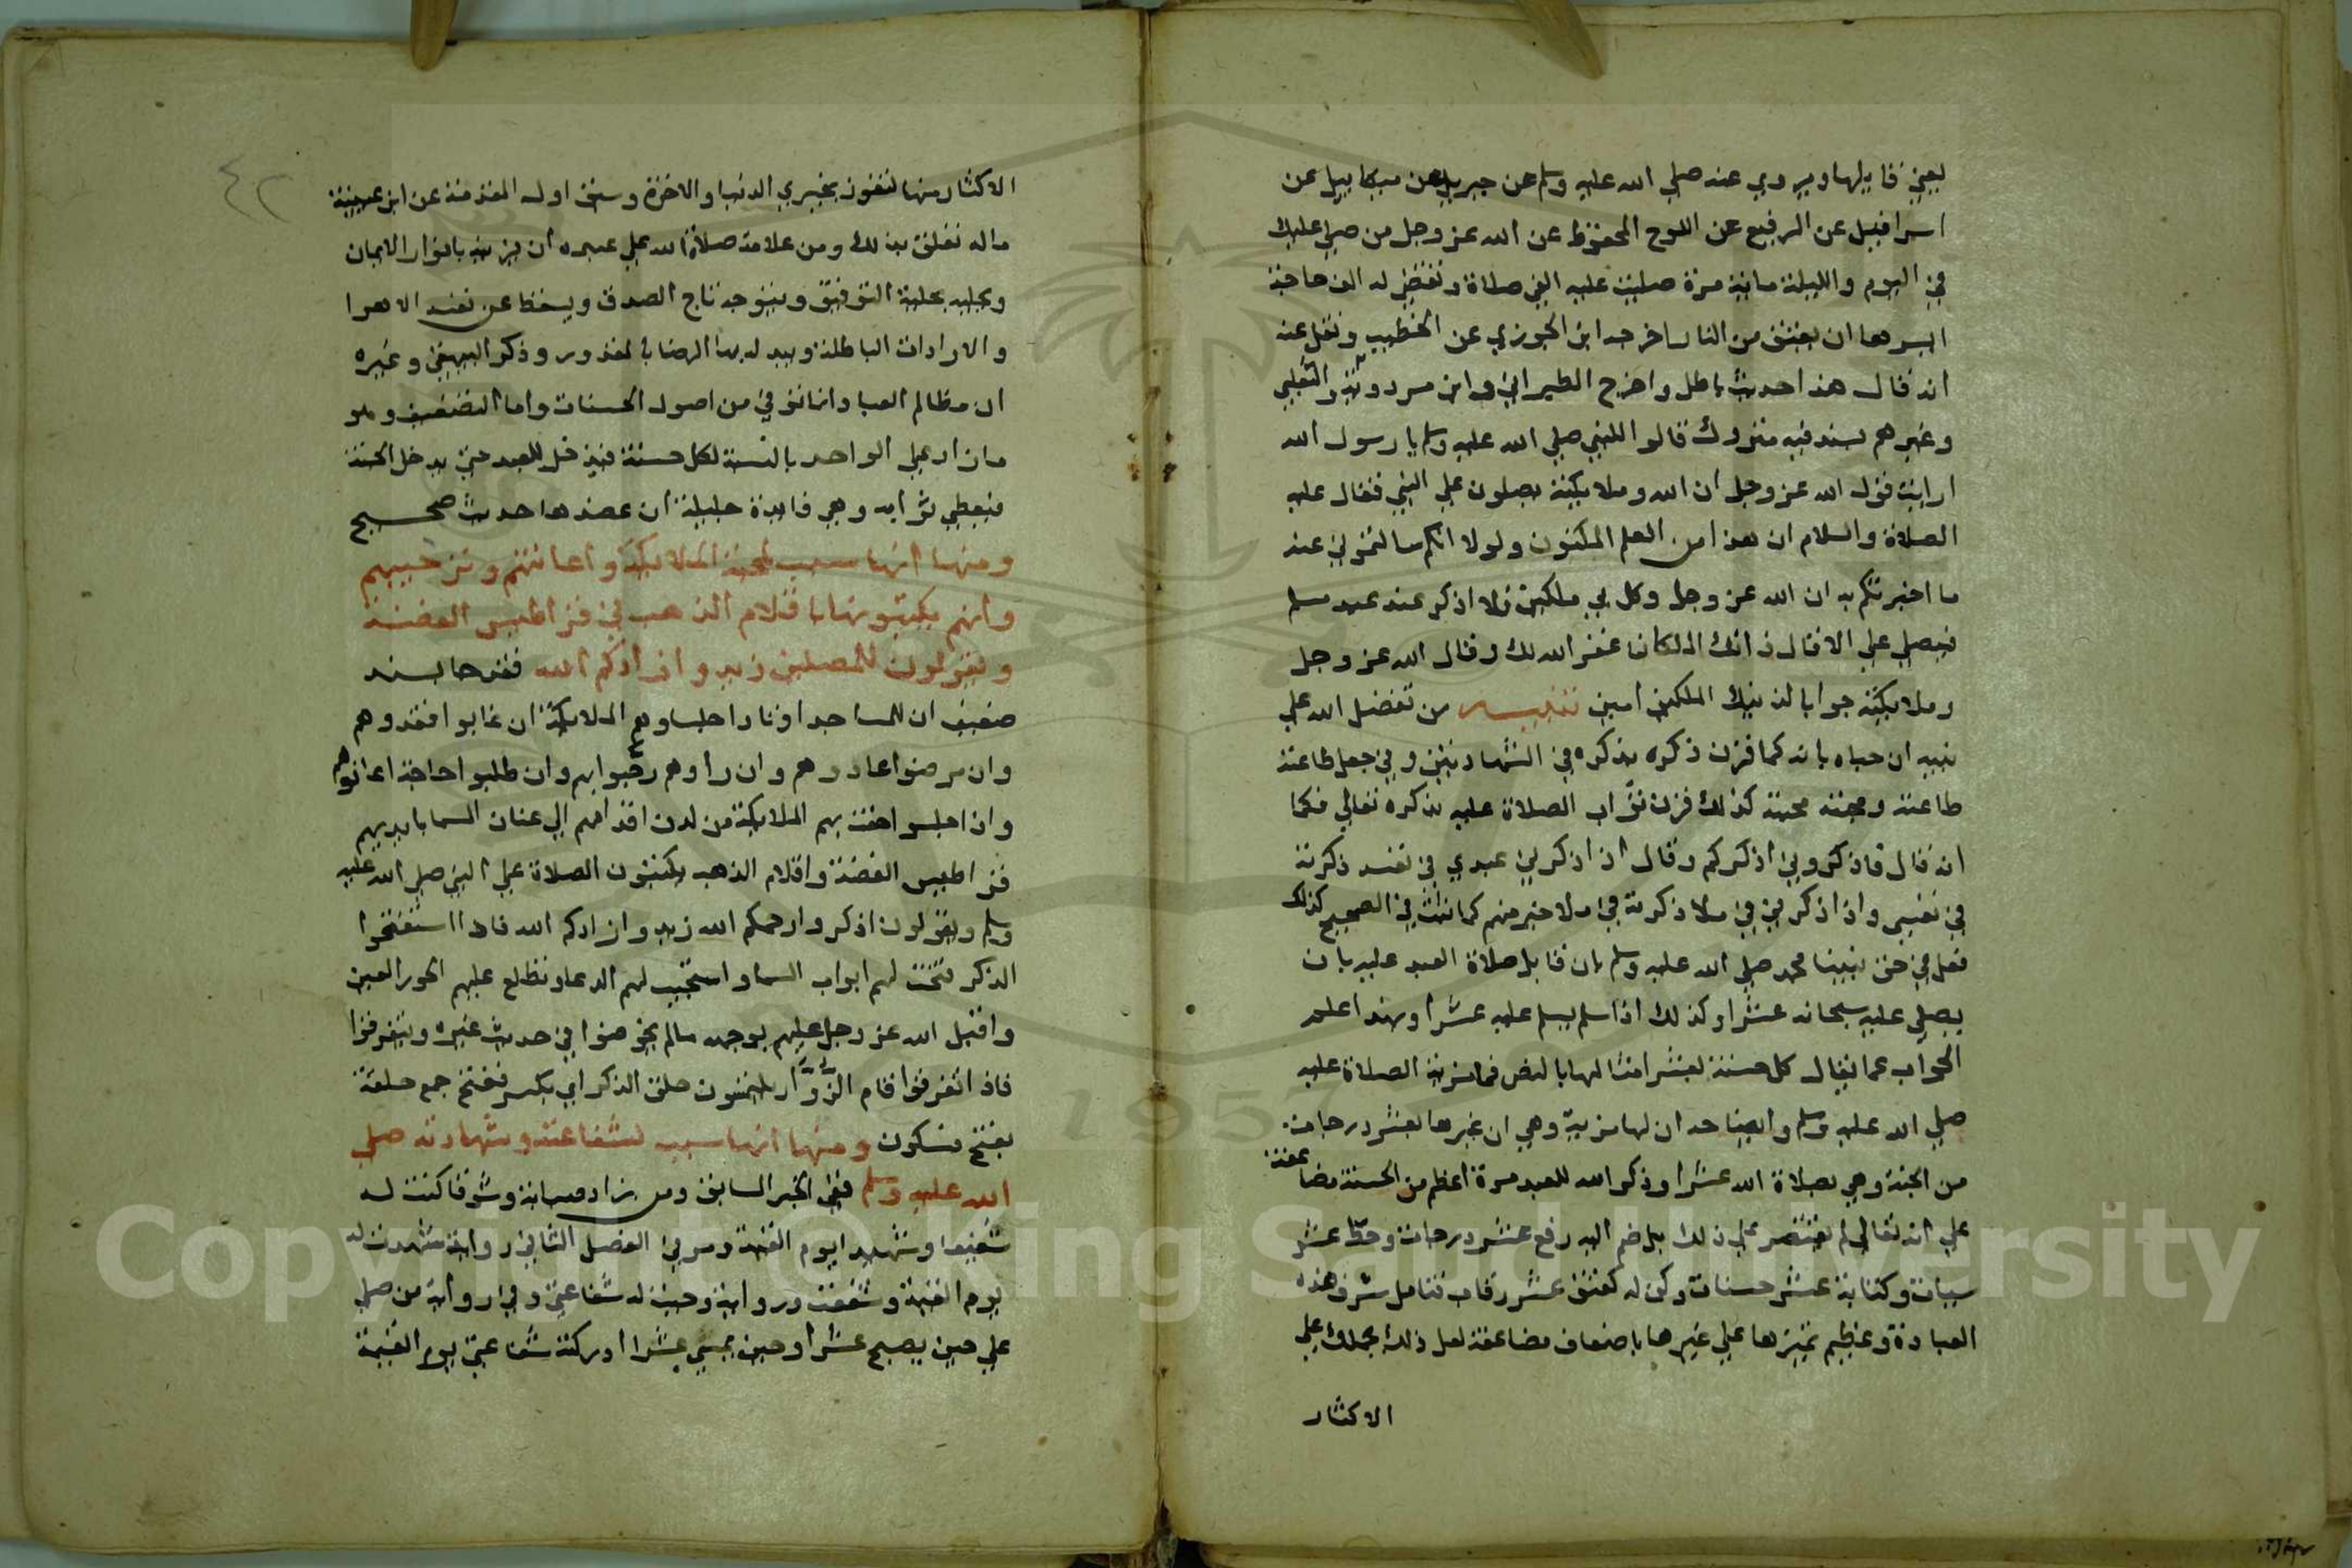 يعني قايلها ويروي عنه صلي الله عليه وسلم عن جبريل عن ميكاييل عن
اسرافيل عن الرفيع عن اللوح المحفوظ عن الله عز وجل من صلي عليك
في اليوم والليلة ماية مرة صليت عليه الفي صلاة وتقضي له الف حاجة
ايسرها ان يعتق من النار اخرجه ابن الجوزي عن الخطيب ونقل عنه
انه قال هذا حديث باطل واخرج الطبراني وابن مردويه والثعلبي
وغيرهم بسند فيه متروك قالوا للنبي صلي الله عليه وسلم يا رسول الله
ارايت قول الله عز وجل ان الله وملايكته يصلون علي النبي فقال عليه
الصلاة والسلام ان هذا من العلم المكنون ولولا انكم سالتموني عنه
ما اخبرتكم به ان الله عز وجل وكل بي ملكين فلا اذكر عند عبد مسلم
فيصلي علي الا قال ذانك الملكان غفر الله لك وقال الله عز وجل
وملايكته جوابا لذينك الملكين امين تنبيه من تفضل الله علي
نبيه ان حباه بانه كما قرن ذكره بذكره في الشهادتين وفي جعل طاعته
طاعته ومحبته محبته كذلك قرن ثواب الصلاة عليه بذكره تعالي فكما
انه قال فاذكروني اذكركم وقال اذا ذكرني عبدي في نفسه ذكرته
في نفسي واذا ذكرني في ملا ذكرته في ملا خير منهم كما ثبت في الصحيح كذلك
فعل في حق نبينا محمد صلي الله عليه وسلم بان قابل صلاة العبد عليه بان
يصلي عليه سبحانه عشرا وكذلك اذا سلم يسلم عليه عشرا وبهذا علم
الجواب عما يقال كل حسنة بعشر امثالها بالنص فما مزية الصلاة عليه
صلي الله عليه وسلم وايضاحه ان لها مزية وهي ان غيرها بعشر درجات
من الجنة وهي بصلاة الله عشرا وذكر الله للعبد مرة اعظم من الحسنة مضاعفة
علي انه تعالي لم يقتصر علي ذلك بل ضم اليه رفع عشر درجات وحط عشر
سيات وكتابة عشر حسنات وكن له كعتق عشر رقاب فتامل شرف هذه
العبادة وعظيم تميزها علي غيرها باضعاف مضاعفة لعل ذلك يحملك علي
الاكثار
الاكثار منها لتفوز بخيري الدنيا والاخرة وسبق اول المقدمة عن ابن عيينة
ماله تعلق بذلك ومن علامة صلاة الله علي عبده ان يزينه بانوار الايمان
ويحليه بحلية التوفيق ويتوجه بتاج الصدق ويسقط عن نفسه الاهوا
والارادات الباطلة ويبدله بها الرضا بالمقدور وذكر البيهقي وغيره
ان مظالم العباد انما توفي من اصول الحسنات واما التضعيف وهو
ما زاد علي الواحد بالنسبة لكل حسنة فيدخل للعبد حتي يدخل الجنة
فيعطي ثوابه وهي فايدة جليلة ان عضدها حديث صحيح
ومنها انها سبب لمحبة الملايكة واعانتهم وترحيبهم
وانهم يكتبونها باقلام الذهب في قراطيس الفضة
ويقولون للمصلين زيدوا زادكم الله فقد جا بسند
ضعيف ان للمساجد اوتادا جلساوهم الملايكة ان غابوا فقدوهم
وان مرضوا عادوهم وان راوهم رحبوا بهم وان طلبوا حاجة اعانوهم
واذا جلسوا حفت بهم الملايكة من لدن اقدامهم الي عنان السما بايديهم
قراطيس الفضة واقلام الذهب يكتبون الصلاة علي النبي صلي الله عليه
وسلم ويقولون اذكروا رحمكم الله زيدوا زادكم الله فاذا استفتحوا
الذكر فتحت لهم ابواب السما واستجيب لهم الدعا وتطلع عليهم الحور العين
واقبل الله عز وجل عليهم بوجهه ما لم يخوضوا في حديث غيره ويتفرقوا
فاذا تفرقوا قام الزوار يلتمسون حلق الذكر اي بكسر ففتح جمع حلقة
بفتح فسكون ومنها انها سبب لشفاعته وشهادته صلي
الله عليه وسلم ففي الخبر السابق ومن زاد صبابة وشوقا كنت له
شفيعا وشهيدا يوم القيمة ومر في الفصل الثاني رواية شهدت له
يوم القيمة وشفعت ورواية وجبت له شفاعتي وفي رواية من صلي
علي حين يصبح عشرا وحين يمسي عشرا ادركته شفاعتي يوم القيمة
٤٢
Copyright © King Saud University
1957